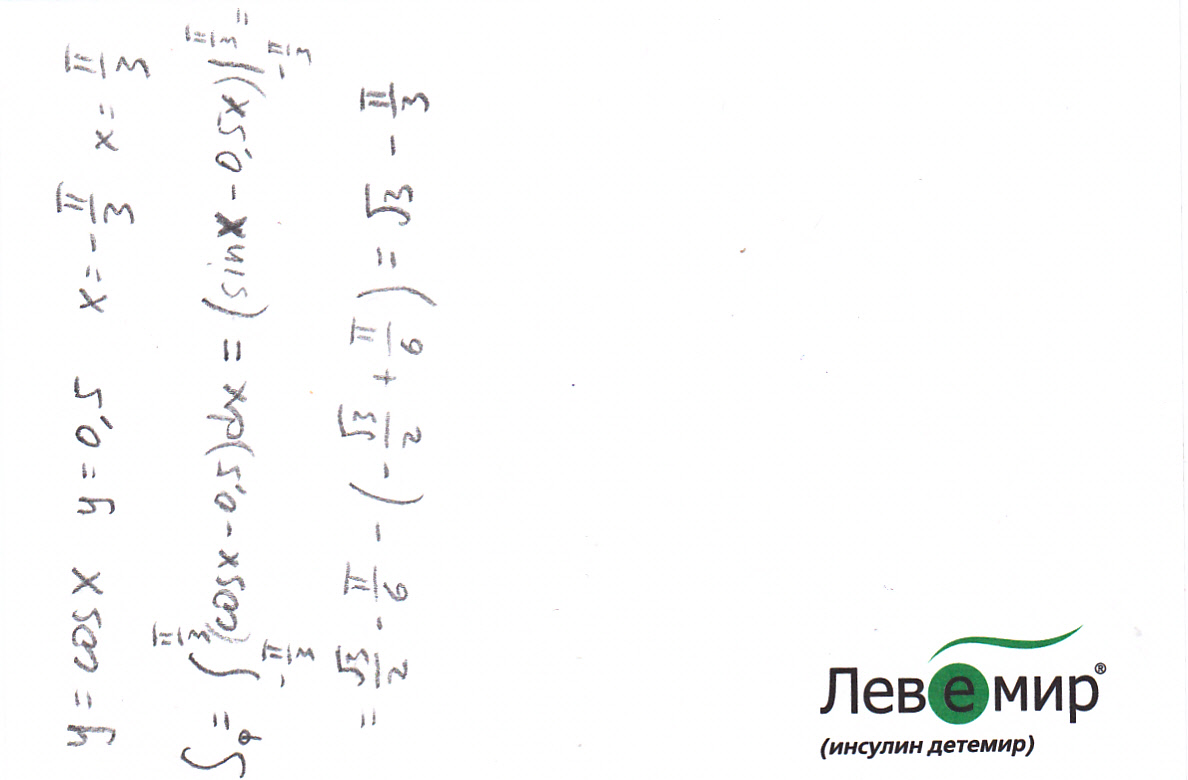 y = cos x   y = 0,5   x = -π/3   x = π/3
Sф = ∫_{-π/3}^{π/3} (cos x - 0,5)dx = (sin x - 0,5x)|_{-π/3}^{π/3} =
= √3/2 - π/6 - (-√3/2 + π/6) = √3 - π/3
Левемир®
(инсулин детемир)